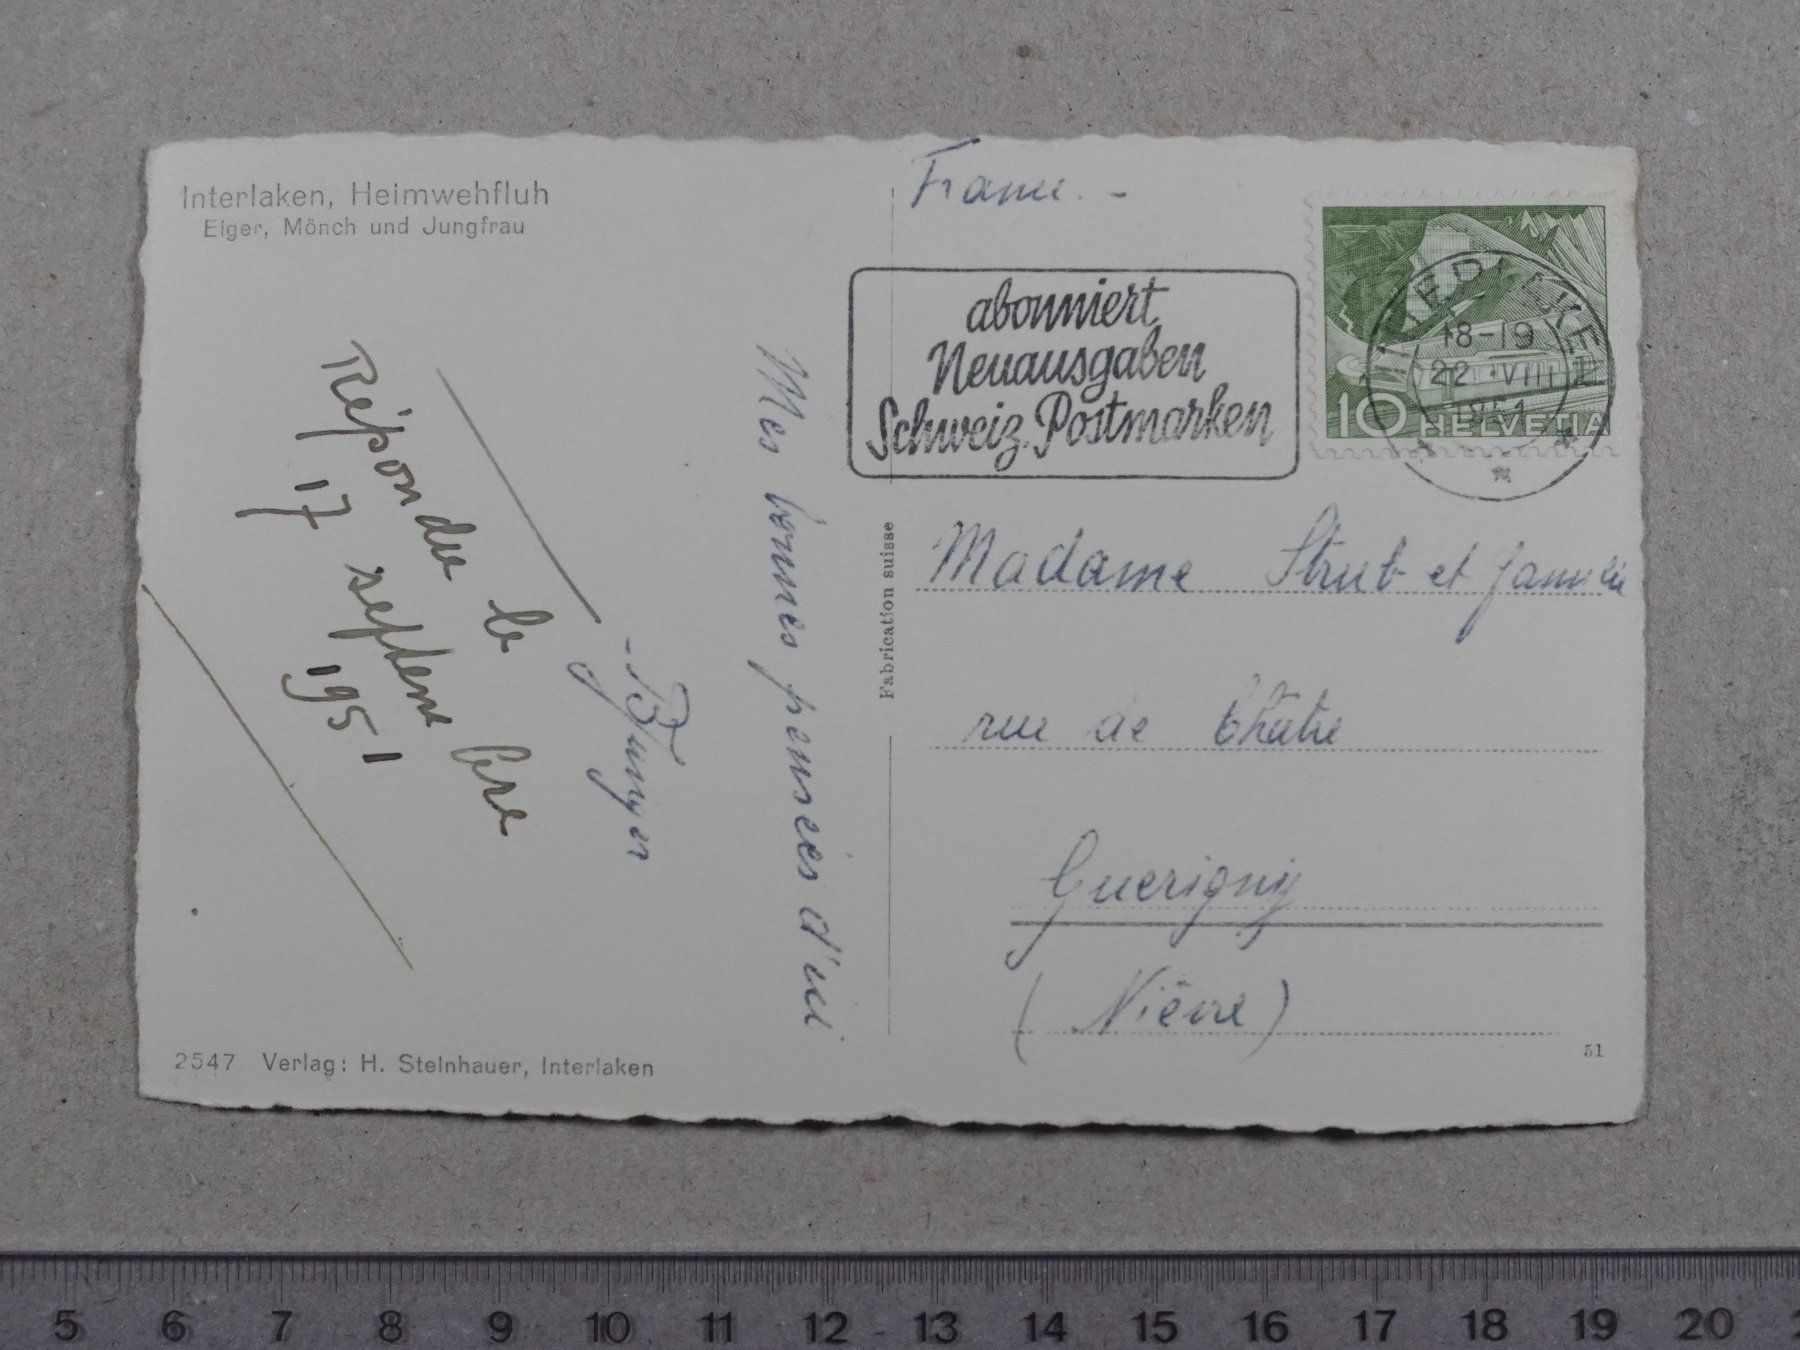 Interlaken, Heimwehfluh
Eiger, Mönch und Jungfrau
Répondu le
17 septembre
1951
Mes bonnes pensées d'ici
2547 Verlag: H. Steinhauer, Interlaken
Fabrication suisse
France. -
abonniert
Neuausgaben
Schweiz. Postmarken
INTERLAKEN
18-19
22.VIII
1951
10 HELVETIA
Madame Strub et famille
rue de
Guerigny
(Nièvre)
51
5 6 7 8 9 10 11 12 13 14 15 16 17 18 19 20